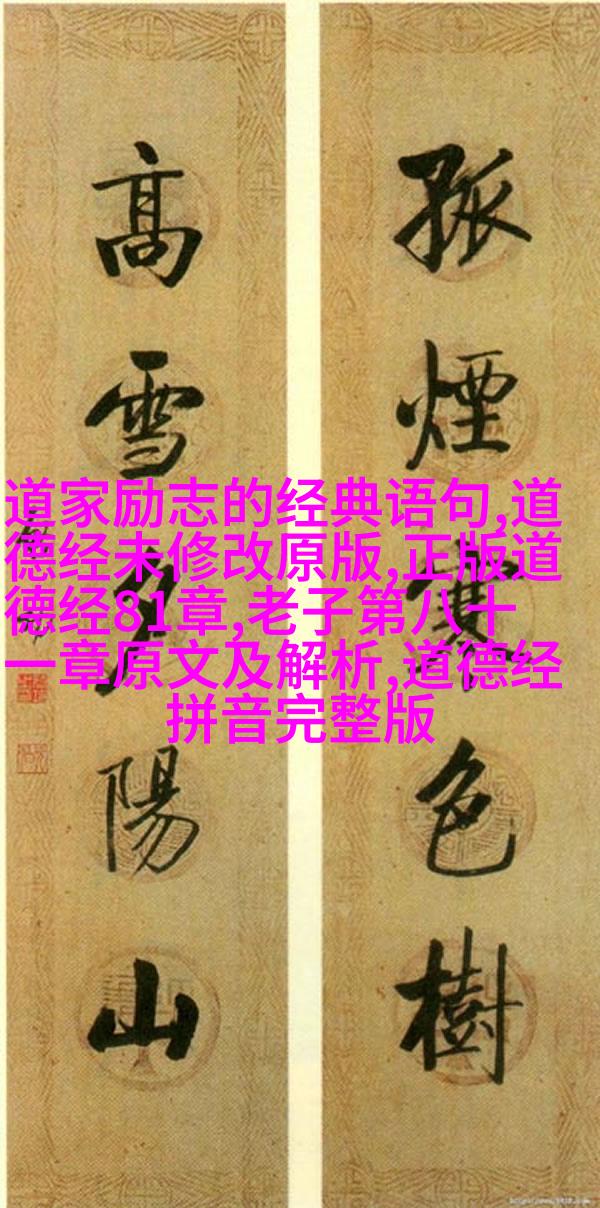 孤煙寒色樹
高雪夕陽山
道家励志的经典语句,道
德经未修改原版,正版道
德经81章,老子第八十
一章原文及解析,道德经
拼音完整版